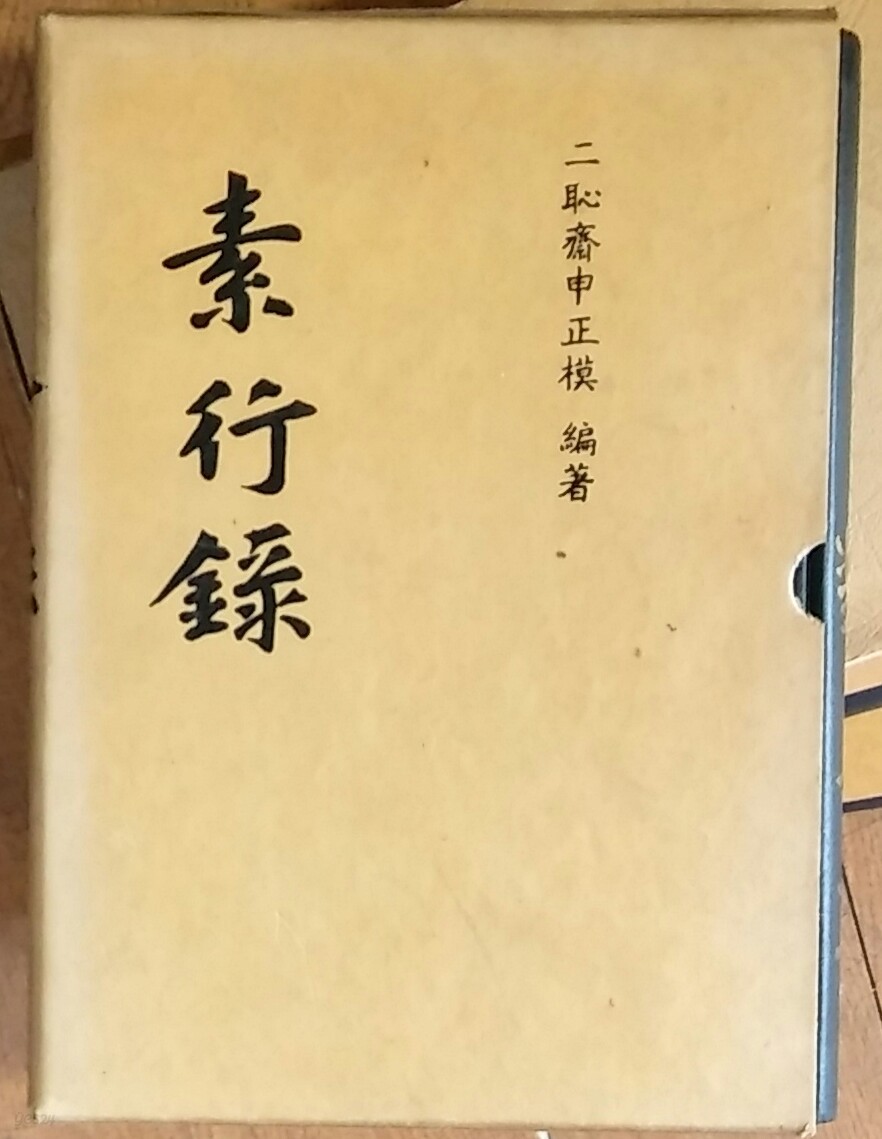 二恥齋申正模 編著
素行錄